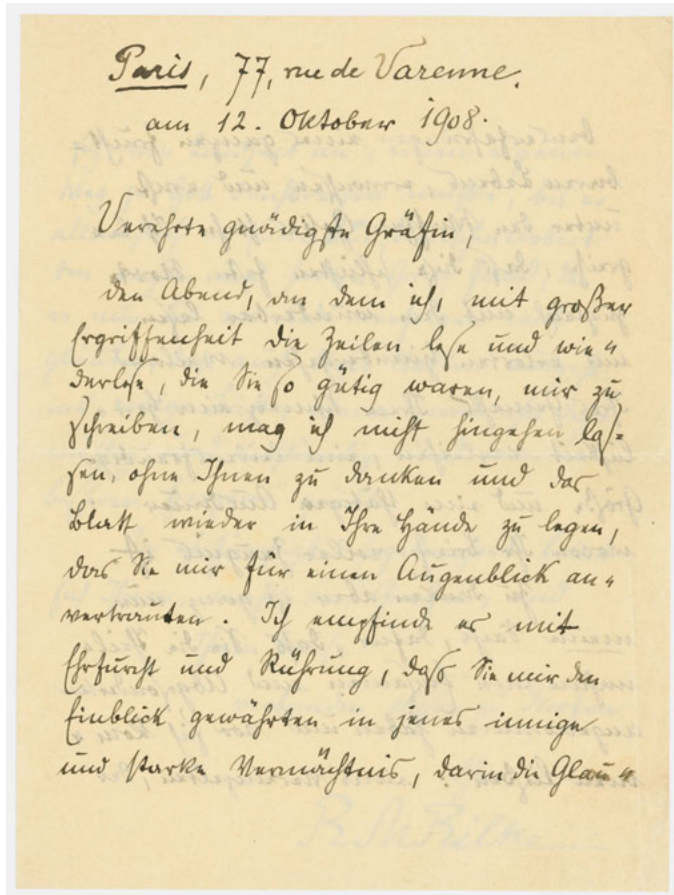 Paris, 77, rue de Varenne.
am 12. Oktober 1908.
Verehrte gnädigste Gräfin,
den Abend, an dem ich, mit großer
Ergriffenheit die Zeilen lese und wie-
derlese, die Sie so gütig waren, mir zu
schreiben, mag ich nicht hingehen las-
sen, ohne Ihnen zu danken und das
Blatt wieder in Ihre Hände zu legen,
das Sie mir für einen Augenblick an-
vertrauten. Ich empfinde es mit
Ehrfurcht und Rührung, daß Sie mir den
Einblick gewährten in jenes innige
und starke Vermächtnis, darin die Glau-